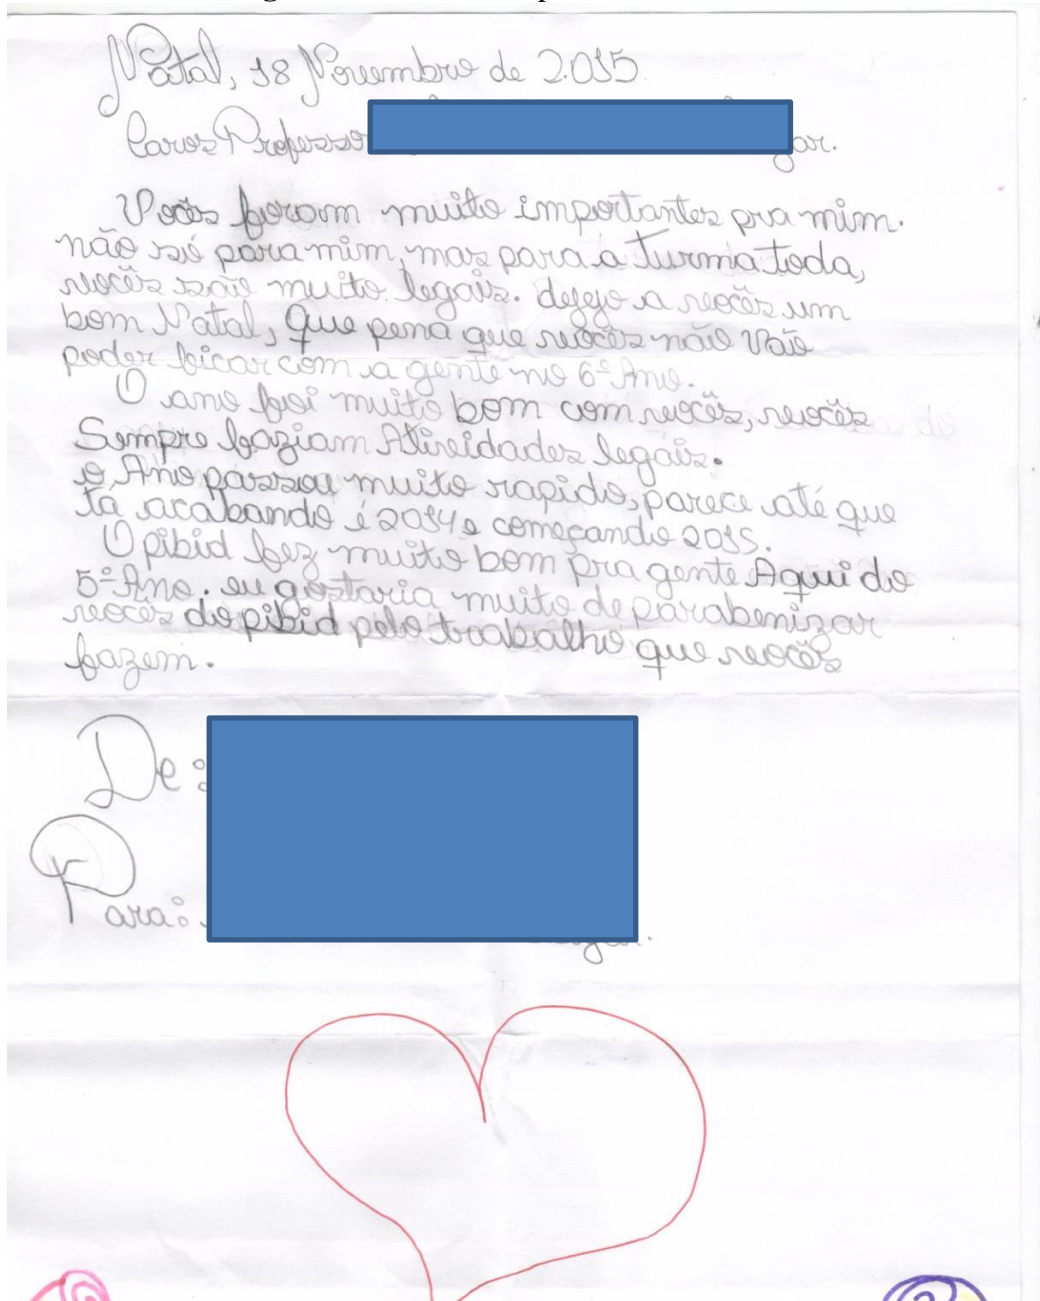 Natal, 18 Novembro de 2015
Caros Professo
Vocês foram muito importantes pra mim.
não só para mim, mas para a Turma toda,
vocês são muito legais. desejo a vocês um
bom Natal, Que pena que vocês não Vão
poder ficar com a gente no 6º Ano.
O ano foi muito bom com vocês, vocês
Sempre faziam Atividades legais.
o Ano passou muito rapido, parece até que
ta acabando é 2014 e começando 2015.
O pibid fez muito bom pra gente Aqui do
5º Ano. eu gostaria muito de parabenizar
vocês do pibid pelo trabalho que vocês
fazem.
De:
Para: